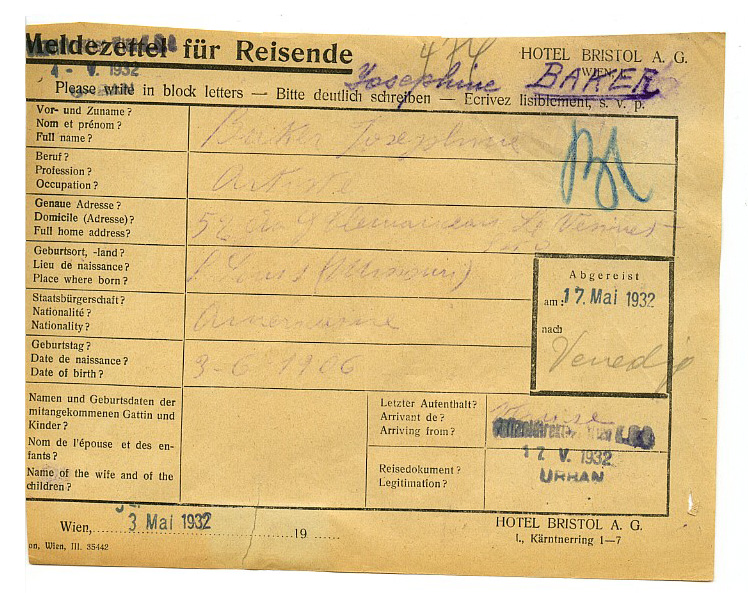 Meldezettel für Reisende
4 - V. 1932
474
HOTEL BRISTOL A. G.
WIEN
Josephine BAKER
Please write in block letters — Bitte deutlich schreiben — Ecrivez lisiblement, s. v. p.
Vor- und Zuname?
Nom et prénom?
Full name?
Baker Josephine
Beruf?
Profession?
Occupation?
Artiste
Genaue Adresse?
Domicile (Adresse)?
Full home address?
52 Av G Clemanceau Le Vesinet
Geburtsort, -land?
Lieu de naissance?
Place where born?
St Louis (Missouri)
Staatsbürgerschaft?
Nationalité?
Nationality?
Americaine
Geburtstag?
Date de naissance?
Date of birth?
3-6-1906
Abgereist
am: 17. Mai 1932
nach
Venedig
Namen und Geburtsdaten der
mitangekommenen Gattin und
Kinder?
Nom de l'épouse et des en-
fants?
Name of the wife and of the
children?
Letzter Aufenthalt?
Arrivant de?
Arriving from?
Reisedokument?
Legitimation?
17 V. 1932
URHAN
Wien, 3 Mai 1932 19
on, Wien, III. 35442
HOTEL BRISTOL A. G.
I., Kärntnerring 1—7